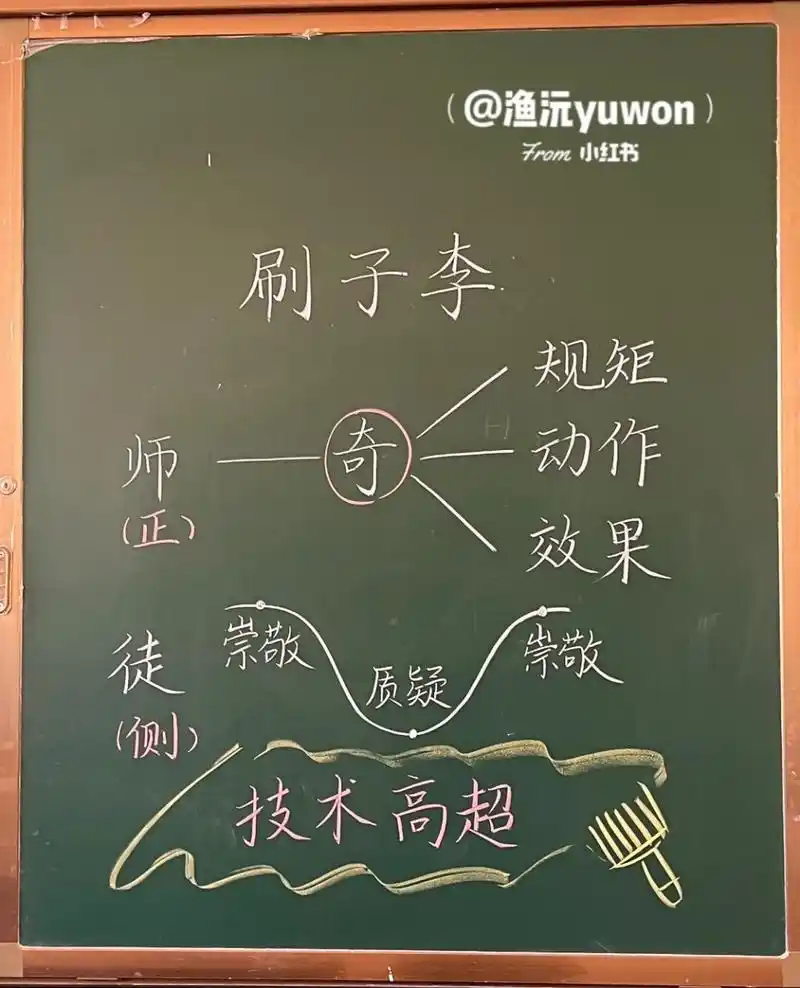 (@渔沅yuwon)
From 小红书
刷子李
规矩
师 奇 动作
(正)
效果
徒 崇敬 质疑 崇敬
(侧)
技术高超